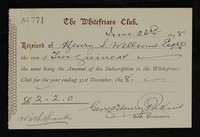 No 771 The Whitefriars Club.
June 26th 1898
Received of Henry S. Wellcome Esqre
the sum of Two Guineas
the same being the Amount of his Subscription to the Whitefriars
Club for the year ending 31st December, 1898.
£ 2.2.0
With thanks
Hon. Treasurer